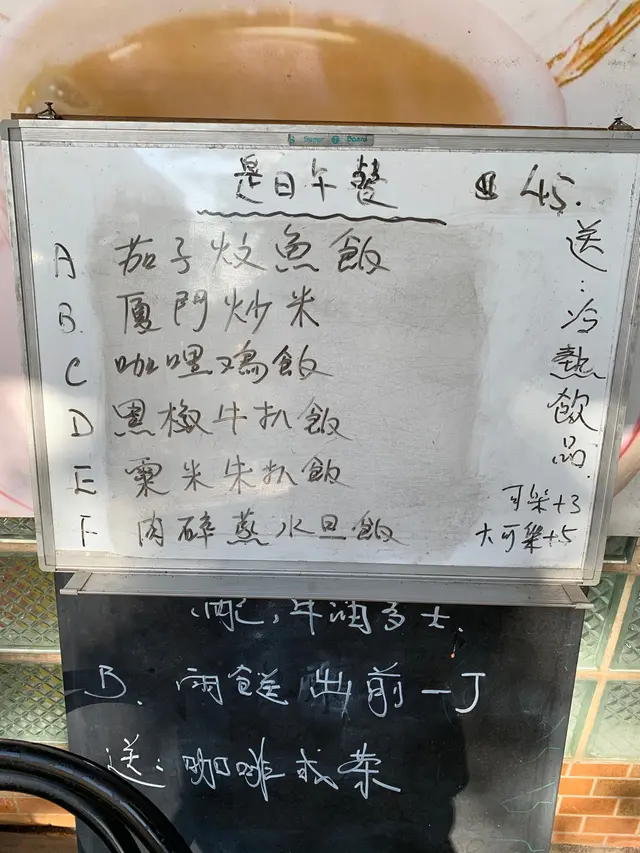 是日午餐 $45.
A 茄子炆魚飯
B. 厦門炒米
C 咖哩鸡飯
D 黑椒牛扒飯
E 粟米朱扒飯
F 肉碎蒸水旦飯
送:冷熱飲品.
可樂+3
大可樂+5
配,牛油多士.
B. 兩餸出前一丁
送: 咖啡或茶